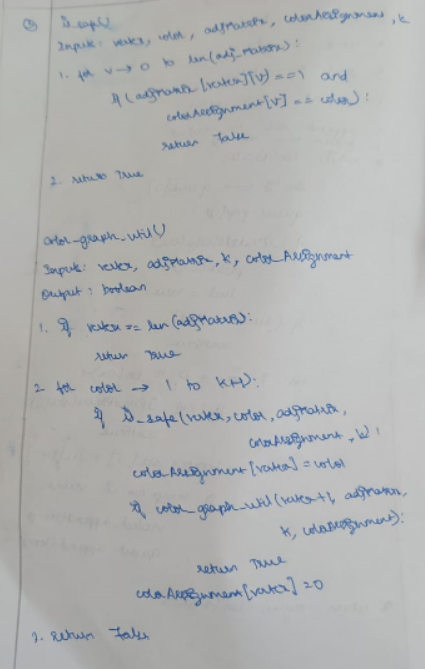 ③ is_safe()
Inputs: vertex, color, adjMatrix, colorAssignment, k
1. for v → 0 to len(adj_matrix):
if (adjMatrix[vertex][v] == 1 and
colorAssignment[v] == color):
return False
2. return True
color_graph_util()
Inputs: vertex, adjMatrix, k, color Assignment
Output: boolean
1. if vertex == len(adjMatrix):
return True
2. for color → 1 to k+1):
if is_safe(vertex, color, adjMatrix,
colorAssignment, k):
color Assignment[vertex] = color
if color_graph_util(vertex+1, adjMatrix,
k, colorAssignment):
return True
color Assignment[vertex] = 0
3. return False